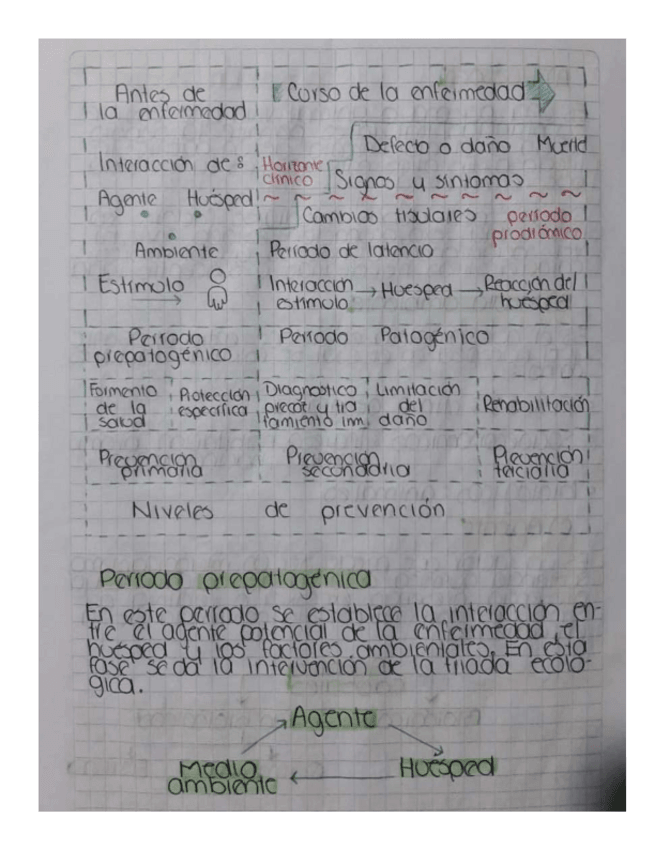 Antes de
la enfermedad
Curso de la enfermedad
Defecto o daño Muerte
Interacción de:
Horizonte
clínico
Signos y síntomas
Agente Huésped
Cambios tisulares
periodo
prodrómico
Ambiente
Periodo de latencia
Estimulo
Interacción
estimulo
Huesped
Reacción del
huésped
Periodo
prepatogénico
Periodo Patogénico
Formento
de la
salud
Protección
específica
Diagnostico
precoz y tra
tamiento inm.
Limitación
del
daño
Rehabilitación
Prevención
primaria
Prevención
secundaria
Prevención
terciaria
Niveles de prevención
Periodo prepatogénico
En este periodo se establece la interacción en-
tre el agente potencial de la enfermedad, el
huésped y los factores ambientales. En esta
fase se da la intervención de la triada ecoló-
gica.
Agente
Medio
ambiente
Huésped